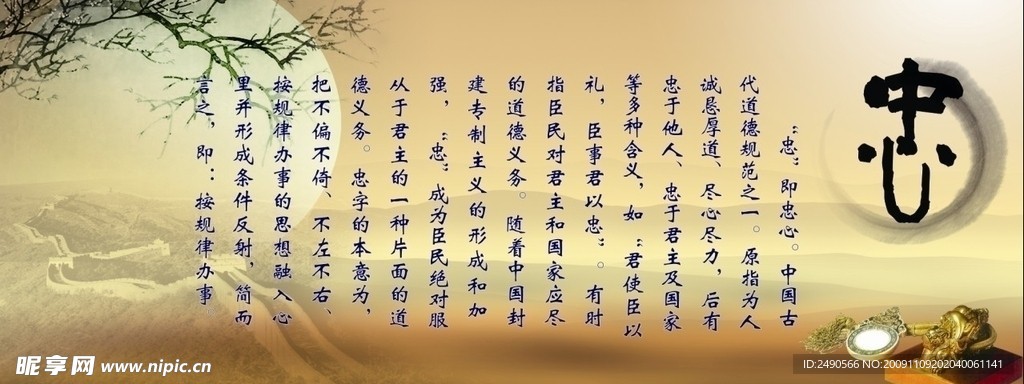 忠
“忠”即忠心。中国古
代道德规范之一。原指为人
诚恳厚道、尽心尽力，后有
忠于他人、忠于君主及国家
等多种含义，如“君使臣以
礼，臣事君以忠”。有时
指臣民对君主和国家应尽
的道德义务。随着中国封
建专制主义的形成和加
强，“忠”成为臣民绝对服
从于君主的一种片面的道
德义务。忠字的本意为，
把不偏不倚、不左不右、
按规律办事的思想融入心
里并形成条件反射，简而
言之，即：按规律办事。
昵享网 www.nipic.cn
ID:2490566 NO:20091109202040061141